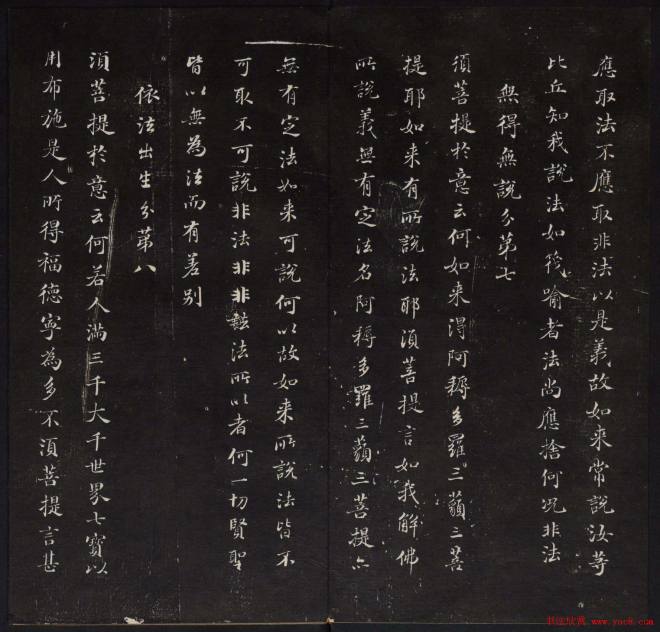 應取法不應取非法以是義故如来常說汝等
比丘知我說法如筏喻者法尚應捨何况非法
無得無說分第七
須菩提於意云何如来得阿耨多羅三藐三菩
提耶如来有所說法耶須菩提言如我解佛
所說義無有定法名阿耨多羅三藐三菩提亦
無有定法如来可說何以故如来所說法皆不
可取不可說非法非非法所以者何一切賢聖
皆以無為法而有差别
依法出生分第八
須菩提於意云何若人滿三千大千世界七寶以
用布施是人所得福德寧為多不須菩提言甚
书法欣赏 www.yac8.com